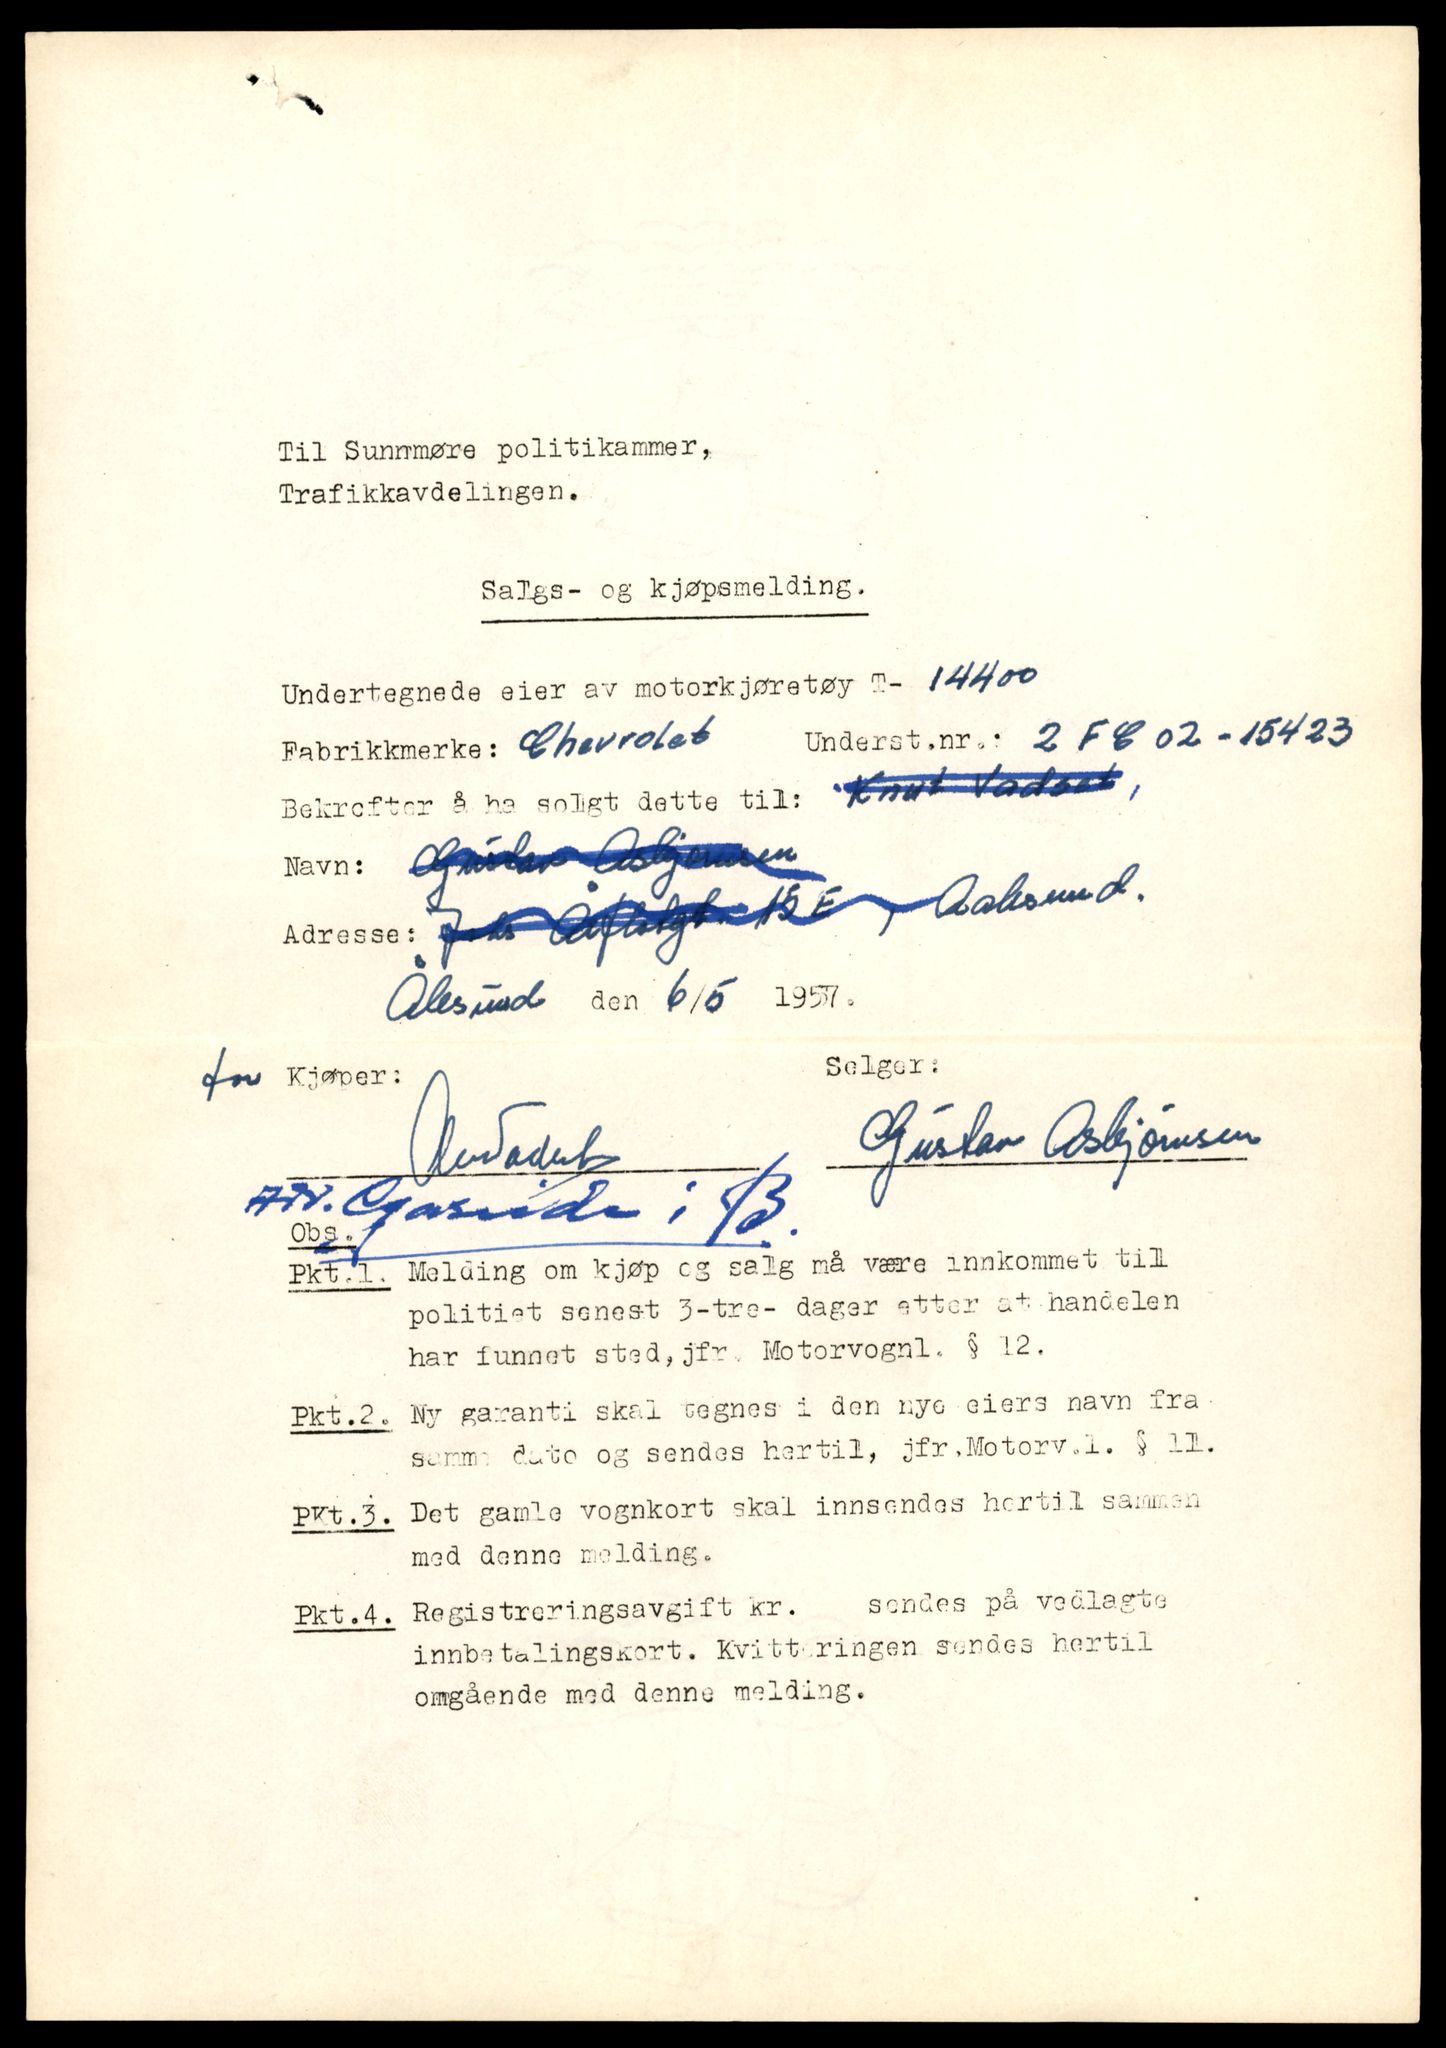 Til Sunnmøre politikammer,
Trafikkavdelingen.
Salgs- og kjøpsmelding.
Undertegnede eier av motorkjøretøy T- 14400
Fabrikkmerke: Chevrolet Underst.nr.: 2 F C 02 - 15423
Bekrefter å ha solgt dette til: Knut Vadset,
Navn: Gustav Asbjørnsen
Adresse: 15 E, Aalesund.
Ålesund den 6/5 1957.
for Kjøper: Selger:
Gustav Asbjørnsen
i B.
Obs.
Pkt.1. Melding om kjøp og salg må være innkommet til
politiet senest 3-tre- dager etter at handelen
har funnet sted, jfr. Motorvognl. § 12.
Pkt.2. Ny garanti skal tegnes i den nye eiers navn fra
samme dato og sendes hertil, jfr. Motorv.l. § 11.
PKt.3. Det gamle vognkort skal innsendes hertil sammen
med denne melding.
Pkt.4. Registreringsavgift kr. sendes på vedlagte
innbetalingskort. Kvitteringen sendes hertil
omgående med denne melding.